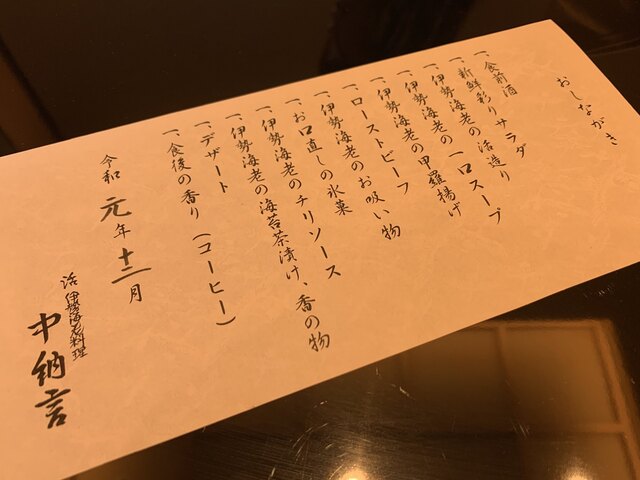 おしながき
一、食前酒
一、新鮮彩りサラダ
一、伊勢海老の活造り
一、伊勢海老の一口スープ
一、伊勢海老の甲羅揚げ
一、ローストビーフ
一、伊勢海老のお吸い物
一、お口直しの氷菓
一、伊勢海老のチリソース
一、伊勢海老の海苔茶漬け、香の物
一、デザート
一、食後の香り（コーヒー）
令和 元年 十二月
活伊勢海老料理
中納言